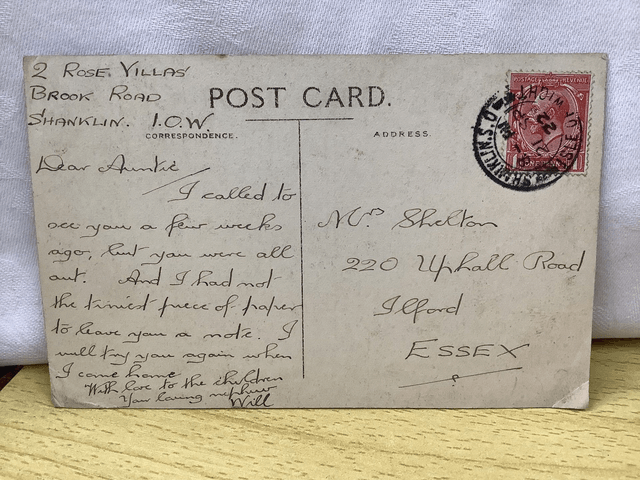 2 ROSE VILLAS
BROOK ROAD
SHANKLIN. I.O.W.
POST CARD.
CORRESPONDENCE.
ADDRESS.
Dear Auntie
I called to
see you a few weeks
ago, but you were all
out. And I had not
the tiniest piece of paper
to leave you a note. I
will try you again when
I come home
With love to the children
Your loving nephew
Will
Mrs Shelton
220 Uphall Road
Ilford
ESSEX
POSTAGE REVENUE
ONE PENNY
SHANKLIN S.O.
ISLE OF WIGHT
22